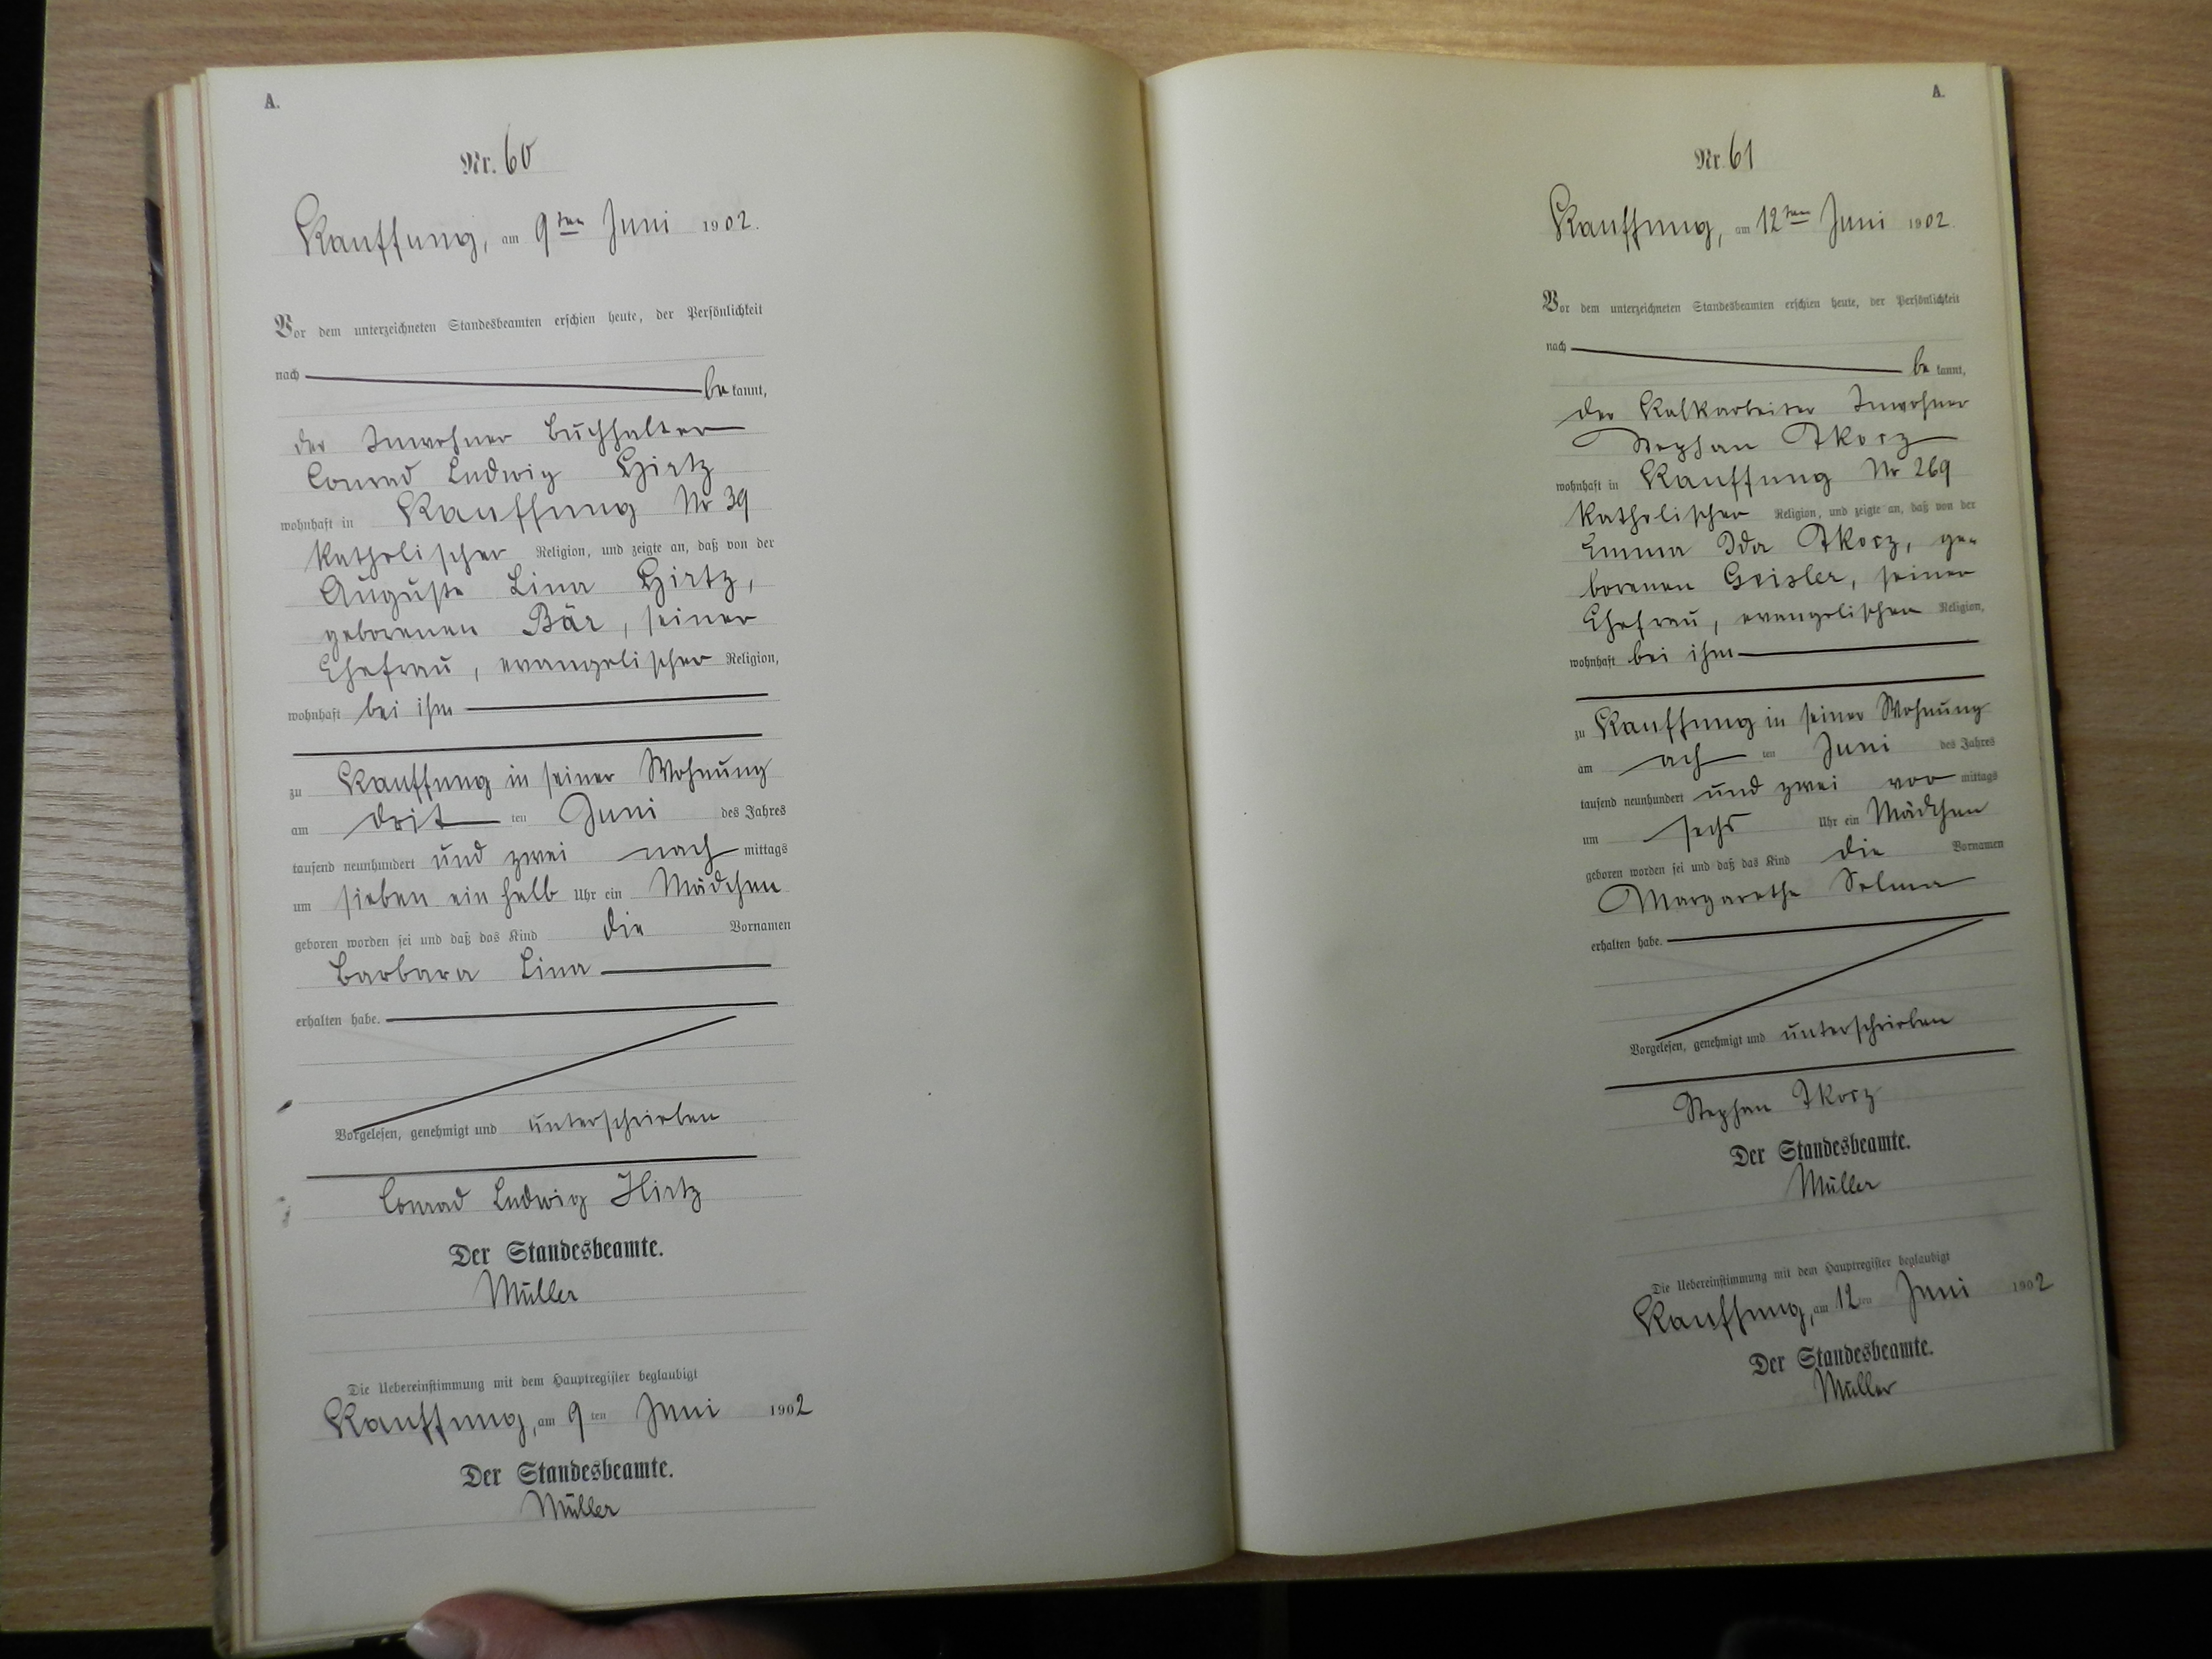 A.
Nr. 60
Kauffung, am 9ten Juni 1902.
Vor dem unterzeichneten Standesbeamten erschien heute, der Persönlichkeit
nach be kannt,
der Inwohner Buchhalter
Conrad Ludwig Hirtz
wohnhaft in Kauffung Nr 39
katholischer Religion, und zeigte an, daß von der
Auguste Lina Hirtz,
geborenen Bär, seiner
Ehefrau, evangelischer Religion,
wohnhaft bei ihm
zu Kauffung in seiner Wohnung
am drit ten Juni des Jahres
tausend neunhundert und zwei nach mittags
um sieben ein halb Uhr ein Mädchen
geboren worden sei und daß das Kind die Vornamen
Barbara Lina
erhalten habe.
Vorgelesen, genehmigt und unterschrieben
Conrad Ludwig Hirtz
Der Standesbeamte.
Müller
Die Uebereinstimmung mit dem Hauptregister beglaubigt
Kauffung, am 9 ten Juni 1902
Der Standesbeamte.
Müller
A.
Nr. 61
Kauffung, am 12ten Juni 1902.
Vor dem unterzeichneten Standesbeamten erschien heute, der Persönlichkeit
nach be kannt,
der Kalkarbeiter Inwohner
Stephan Tkocz
wohnhaft in Kauffung Nr 269
katholischer Religion, und zeigte an, daß von der
Emma Ida Tkocz, ge-
borenen Geisler, seiner
Ehefrau, evangelischen Religion,
wohnhaft bei ihm
zu Kauffung in seiner Wohnung
am ach ten Juni des Jahres
tausend neunhundert und zwei vor mittags
um sechs Uhr ein Mädchen
geboren worden sei und daß das Kind die Vornamen
Margarethe Selma
erhalten habe.
Vorgelesen, genehmigt und unterschrieben
Stephan Tkocz
Der Standesbeamte.
Müller
Die Uebereinstimmung mit dem Hauptregister beglaubigt
Kauffung, am 12 ten Juni 1902
Der Standesbeamte.
Müller